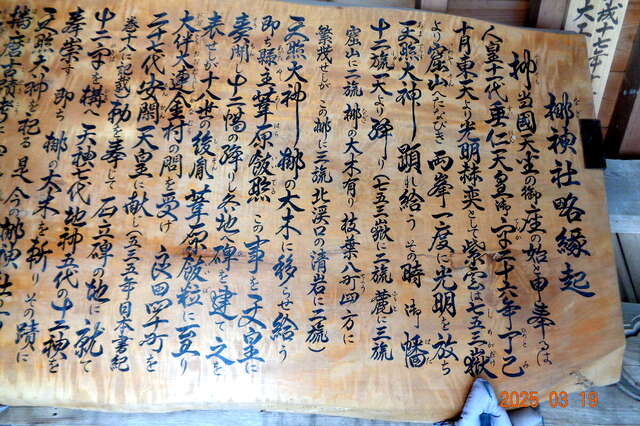 梛神社略縁起
梛当國天坐の御座の始と申奉るは
人皇十一代垂仁天皇御宇二十六年丁巳
十月東天より光明赫奕として紫雲は七五三嶽
より窟山へたなびき両峯一度に光明を放ち
天照大神顕れ給うその時御幡
十二流天より降り(七五三嶽に二流麓に三流
窟山に二流梛の大木有り枝葉八町四方に
繁茂せしがこの梛に三流北渓口の清岩に二流)
天照大神梛の大木に移らせ給う
即ち縣主葦原飯照この事を天皇に
奏聞十二幡の降りし各地へ碑を建て之を
表せしが十八世の後胤葦原飯粒に至り
大伴大連金村の問を受け良田四十町を
二十七代安閑天皇に献し五三五年日本書紀
巻十八に記載勅を奉して石立碑の地に就て
十二宇を構へ天神七代地神五代の十二神を
奉崇す即ち梛の大木を斬りその蹟に
天照大神を祀る是今の梛神社
播磨古蹟考に
成十七年
2025 03 19